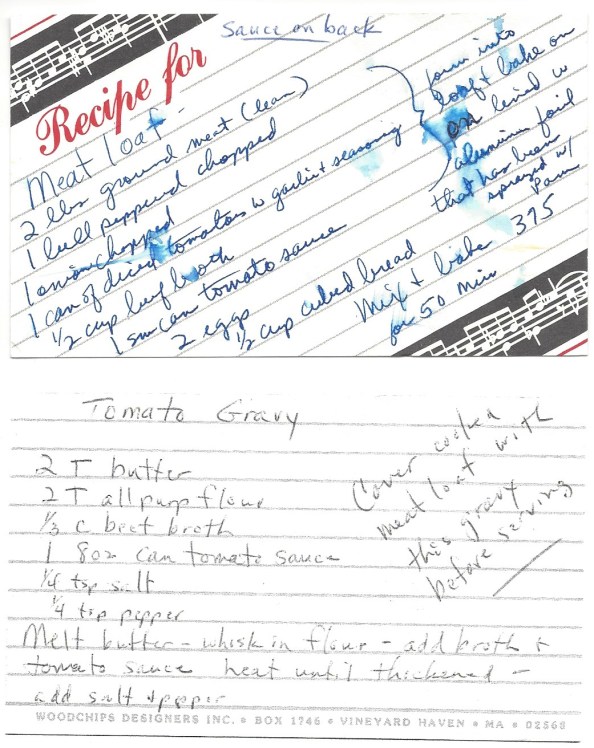 Sauce on back
Recipe for
Meat loaf -
2 lbs ground meat (lean)
1 bell pepper chopped
1 onion chopped
1 can of diced tomatoes w garlic + seasoning
1/2 cup beef broth
1 sm can tomato sauce
2 eggs
1/2 cup cubed bread
Mix + bake 375
for 50 min
form into
loaf + bake on
pan lined w
aluminum foil
that has been
sprayed w/
Pam
Tomato Gravy
2 T butter
2 T all purp flour
1/3 c beef broth
1 8oz can tomato sauce
1/4 tsp salt
1/4 tsp pepper
Melt butter - whisk in flour - add broth +
tomato sauce heat until thickened -
add salt + pepper
Cover cooked
meat loaf with
this gravy
before serving
WOODCHIPS DESIGNERS INC. • BOX 1746 • VINEYARD HAVEN • MA • 02568